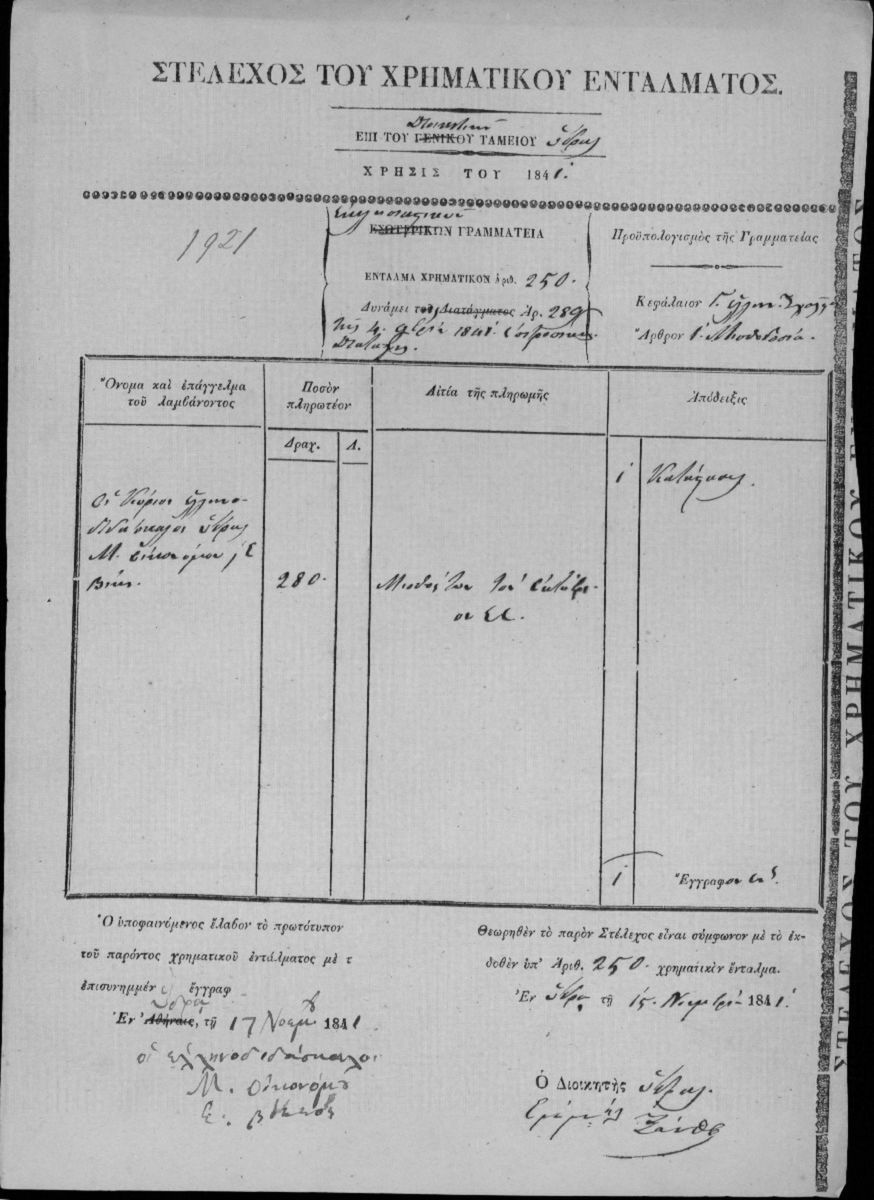 ΣΤΕΛΕΧΟΣ ΤΟΥ ΧΡΗΜΑΤΙΚΟΥ ΕΝΤΑΛΜΑΤΟΣ.
ΕΠΙ ΤΟΥ ΓΕΝΙΚΟΥ ΤΑΜΕΙΟΥ Ὕδρας
ΧΡΗΣΙΣ ΤΟΥ 1841.
1921
ΕΣΩΤΕΡΙΚΩΝ ΓΡΑΜΜΑΤΕΙΑ
ΕΝΤΑΛΜΑ ΧΡΗΜΑΤΙΚΟΝ ἀριθ. 250.
Δυνάμει τοῦ Διατάγματος Ἀρ. 289
τῆς 4. 1841
Διαταγῆς.
Προϋπολογισμὸς τῆς Γραμματείας
Κεφάλαιον Γ.
Ἄρθρον 1. Μισθοδοσία.
Ὄνομα καὶ ἐπάγγελμα
τοῦ λαμβάνοντος
Ποσὸν
πληρωτέον
Αἰτία τῆς πληρωμῆς
Ἀπόδειξις
Δραχ. Λ.
1 Κατάστασις
Οἱ Κύριοι ἑλληνο-
διδάσκαλοι Ὕδρας
Μ. Οἰκονόμου Ε
280.
Μισθός των τοῦ
1 Ἔγγραφον
Ὁ ὑποφαινόμενος ἔλαβον τὸ πρωτότυπον
τοῦ παρόντος χρηματικοῦ ἐντάλματος μὲ τ
ἐπισυνημμέν ἔγγραφ
Ὕδρᾳ
Ἐν Ἀθήναις, τῇ 17 Νοεμ 1841.
οἱ ἑλληνοδιδάσκαλοι
Μ. Οἰκονόμου
Ε.
Θεωρηθὲν τὸ παρὸν Στέλεχος εἶναι σύμφωνον μὲ τὸ ἐκ-
δοθὲν ὑπ' Ἀριθ. 250. χρηματικὸν ἔνταλμα.
Ἐν Ὕδρᾳ τῇ 15 Νοεμβρίου 1841.
Ὁ Διοικητὴς Ὕδρας.
ΣΤΕΛΕΧΟΣ ΤΟΥ ΧΡΗΜΑΤΙΚΟΥ